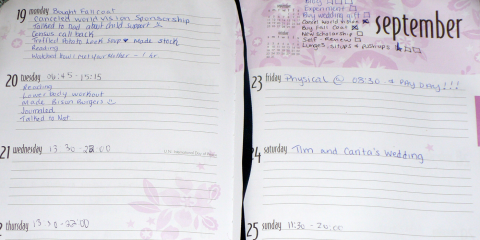 19 monday Bought Fall coat
Canceled world vision sponsorship
Talked to Dad about child support
Census call back
Grilled Potato Leek soup ♥ Made stock
Reading
Watched how I met your Mother -
20 tuesday 06:45 - 15:15
Reading
Lower belly workout
Made Bison Burgers ☺
Journaled
Talked to Nat
21 wednesday 13:30 - 22:00
thursday 13:30 - 22:00
Blog
Experiment
Buy wedding
Buy Fall Coat
New Scholarship
Self - Review
Lunges, situps & pushups
september
23 friday Physical @ 08:30 & Pay Day!!!
24 saturday Tim and Carita's Wedding
25 sunday 11:30 - 20:00